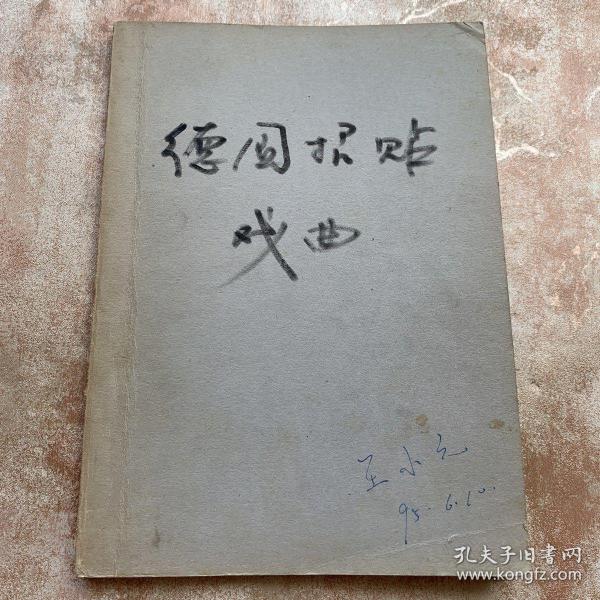 德国招贴
戏曲
王小元
95.6.10.
孔夫子旧书网
www.kongfz.com